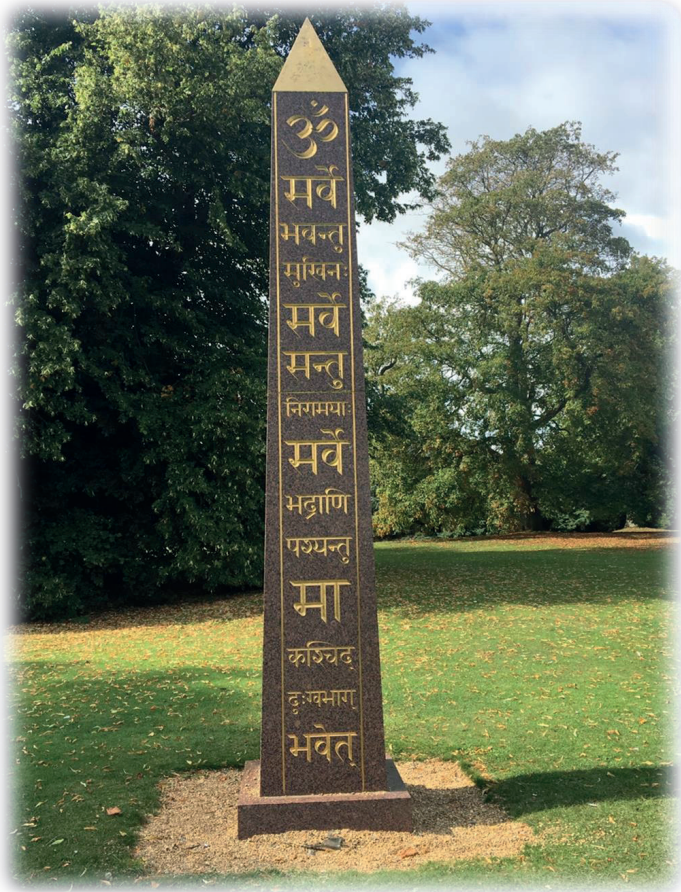 ॐ
सर्वे
भवन्तु
सुखिनः
सर्वे
सन्तु
निरामया
सर्वे
भद्राणि
पश्यन्तु
मा
कश्चिद्
दुःखभाग्
भवेत्